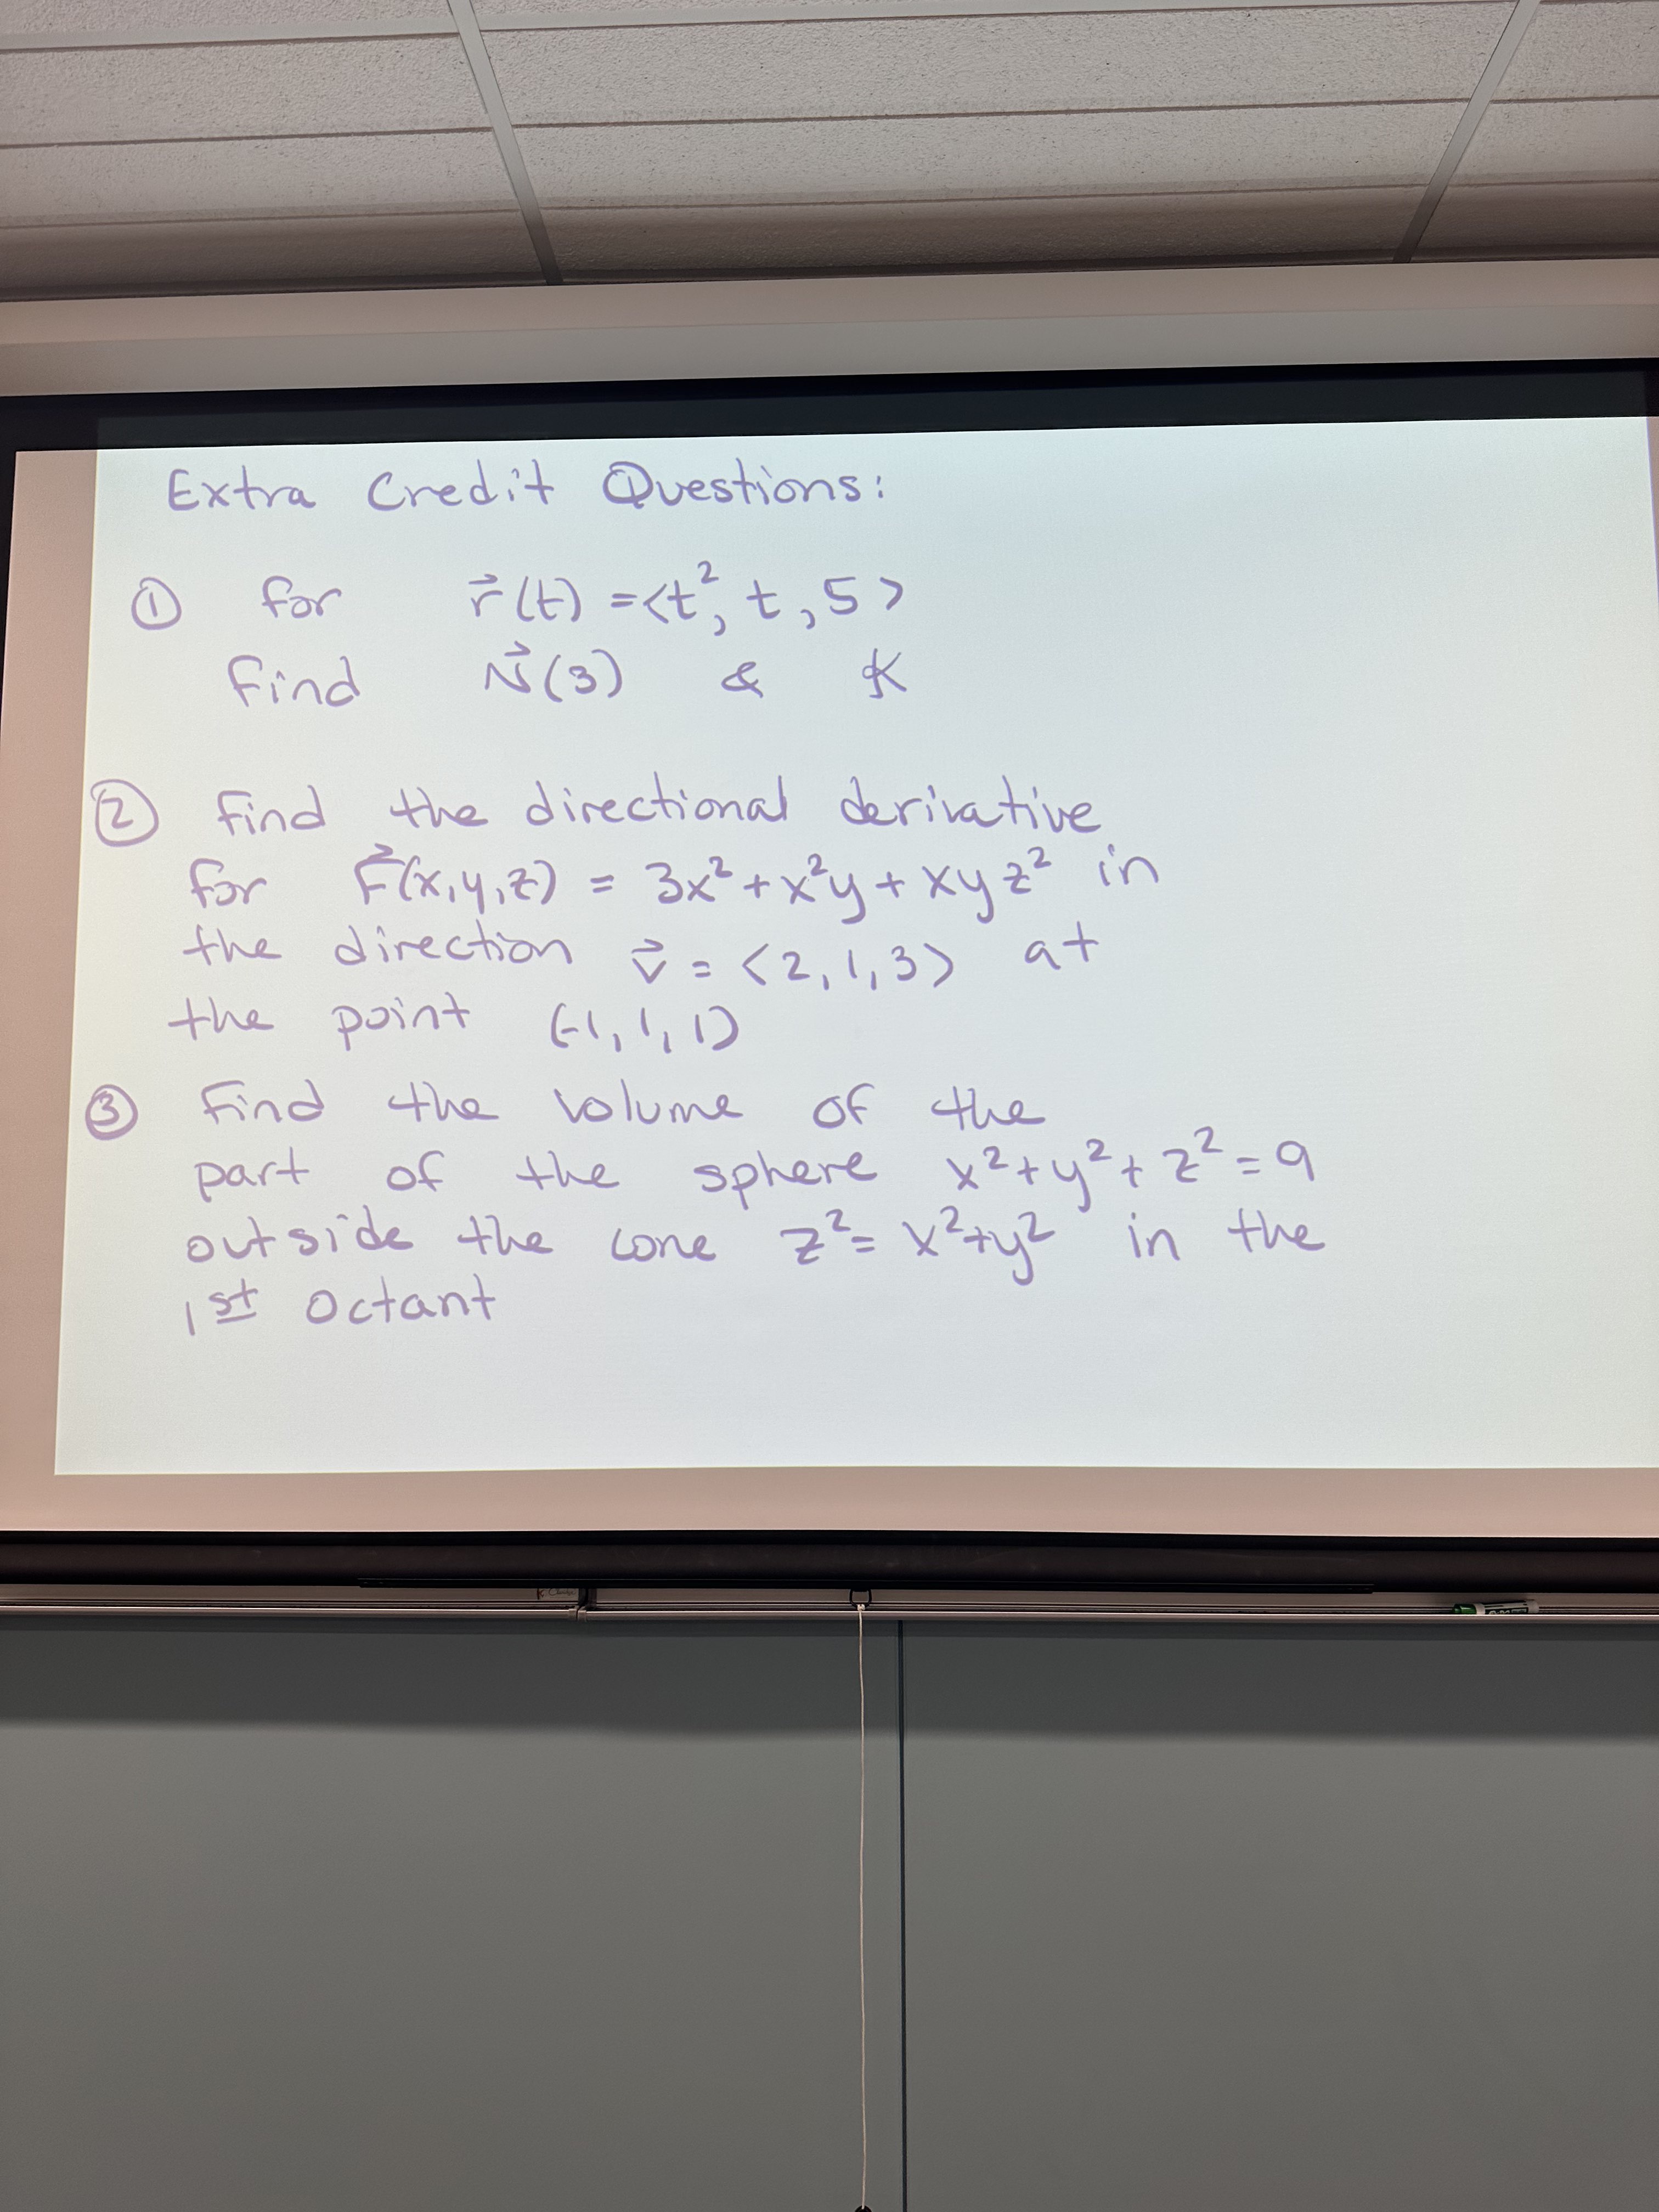 Extra Credit Questions:
① For r⃗(t) = <t², t, 5>
Find N⃗(3) & K
② Find the directional derivative
for F⃗(x,y,z) = 3x² + x²y + xyz² in
the direction v⃗ = <2,1,3> at
the point (-1,1,1)
③ Find the volume of the
part of the sphere x²+y²+z²=9
outside the cone z²=x²+y² in the
1st Octant